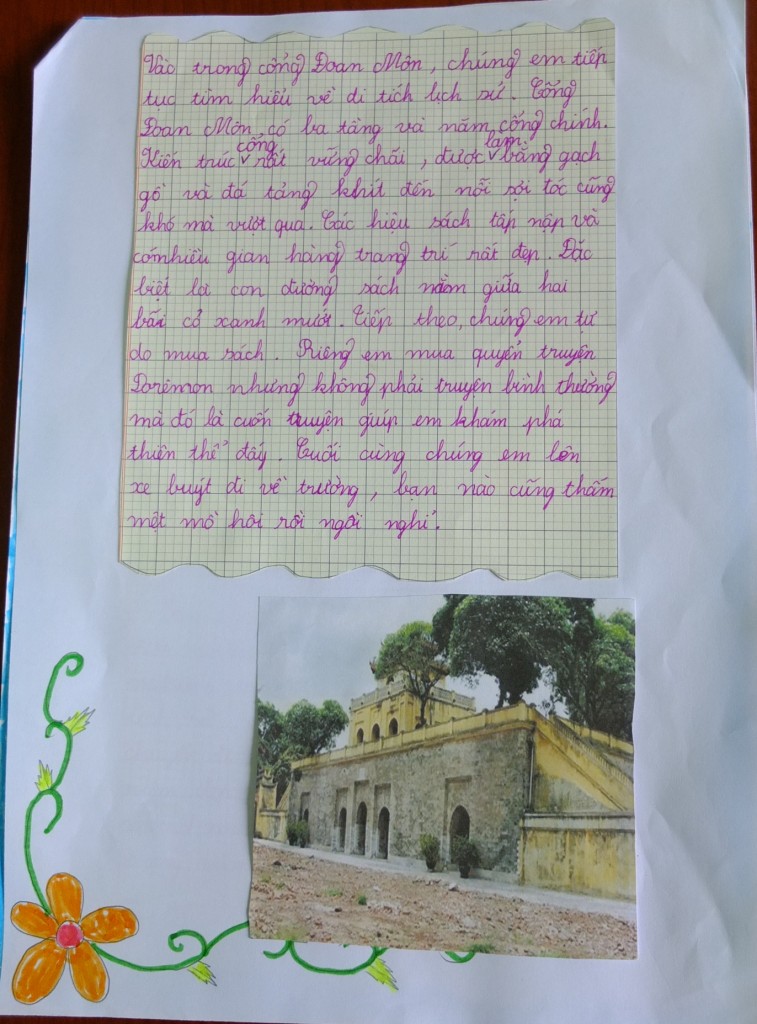 Vào trong cổng Đoan Môn, chúng em tiếp
tục tìm hiểu về di tích lịch sử. Cổng
Đoan Môn có ba tầng và năm cổng chính.
cổng làm
Kiến trúc rất vững chãi, được bằng gạch
gồ và đá tảng khít đến nỗi sợi tóc cũng
khó mà vượt qua. Các hiệu sách tấp nập và
cónhiều gian hàng trang trí rất đẹp. Đặc
biệt là con đường sách nằm giữa hai
bãi cỏ xanh mướt. Tiếp theo, chúng em tự
do mua sách. Riêng em mua quyển truyện
Dorêmon nhưng không phải truyện bình thường
mà đó là cuốn truyện giúp em khám phá
thiên thể đấy. Cuối cùng chúng em lên
xe buýt đi về trường, bạn nào cũng thấm
mệt mồ hôi rồi ngồi nghỉ.